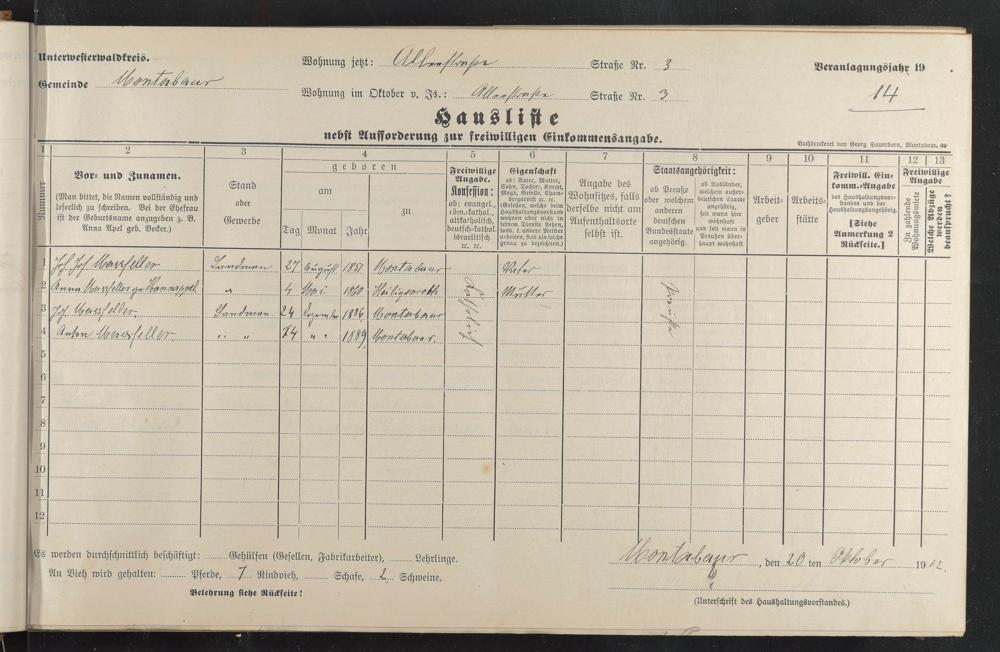 Unterwesterwaldkreis.
Gemeinde Montabaur
Wohnung jetzt: Straße Nr. 3
Wohnung im Oktober v. Js.: Straße Nr. 3
Veranlagungsjahr 19
14
Hausliste
nebst Aufforderung zur freiwilligen Einkommensangabe.
Buchdruckerei von Georg Sauerborn, Montabaur.
1 2 3 4 5 6 7 8 9 10 11 12 13
Nummer
Vor- und Zunamen.
(Man bittet, die Namen vollständig und
leserlich zu schreiben. Bei der Ehefrau
ist der Geburtsname anzugeben z. B.
Anna Apel geb. Becker.)
Stand
oder
Gewerbe
geboren
am
Tag Monat Jahr
zu
Freiwillige
Angabe.
Konfession:
ob: evangel.,
röm.-kathol.,
altkatholisch,
deutsch-kathol.
israelitisch
ec. ec.
Eigenschaft
ob: Vater, Mutter,
Sohn, Tochter, Knecht,
Magd, Geselle, Cham-
bergarnist ec. ec.
(Gesellen, welche beim
Haushaltungsvorstand
wohnen aber nicht in
seinem Dienste stehen,
sond. b. andere Meister
arbeiten, sind als solche
genau zu bezeichnen).
Angabe des
Wohnsitzes, falls
derselbe nicht am
Aufenthaltsorte
selbst ist.
Staatsangehörigkeit:
ob Preuße
oder welchem
anderen
deutschen
Bundesstaate
angehörig.
ob Ausländer,
welchem außer-
deutschen Staate
angehörig,
seit wann hier
wohnhaft
und seit wann in
Preußen über-
haupt wohnhaft
Arbeit-
geber
Arbeits-
stätte
Freiwill. Ein-
komm.-Angabe
des Haushaltungsvor-
standes und der
Haushaltungsangehörig.
[Siehe
Anmerkung 2
Rückseite.]
Freiwillige
Angabe
Zu zahlende
Wohnungsmiete
Welche Abzüge
werden
beansprucht?
1 Landman 27 August 1851 Montabaur Vater
2 Anna " 4 Mai 1860 Mutter
3 Landman 24 Dezember 1886 Montabaur
4 Anton " " " " 1889 Montabaur.
Preuße
5
6
7
8
9
10
11
12
Es werden durchschnittlich beschäftigt: Gehülfen (Gesellen, Fabrikarbeiter), Lehrlinge.
An Vieh wird gehalten: Pferde, 7 Rindvieh, Schafe, 2 Schweine.
Belehrung siehe Rückseite!
Montabaur, den 20 ten Oktober 1912.
(Unterschrift des Haushaltungsvorstandes.)